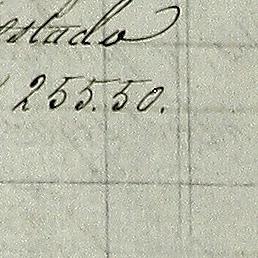 estado
255.50.